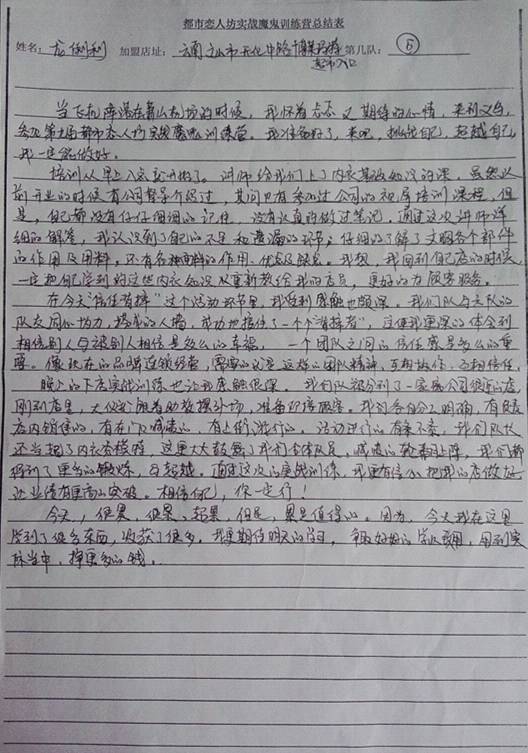 都市恋人坊实战魔鬼训练营总结表
姓名：龙俐利 加盟店址：云南文山市开化中路 第几队：5
超市入口
当飞机降落在萧山机场的时候，我怀着忐忑又期待的心情，来到义乌，
参加第七届都市恋人坊实战魔鬼训练营。我准备好了，来吧，挑战自己，超越自己，
我一定能做好。
培训从早上八点就开始了。讲师给我们上了内衣基础知识的课。虽然以
前开业的时候有公司督导介绍过，其间也有参加过公司的视屏培训课程，但
是，自己都没有仔仔细细的记住，没有认真的做过笔记，通过这次讲师详
细的解答，我认识到了自己的不足和遗漏的环节；仔细的了解了文胸各个部件
的作用及用料，还有各种面料的作用、优点及缺点。我想，我回到自己店的时候，
一定把自己学到的这些内衣知识从重新教给我的店员，更好的为顾客服务。
在今天"信任背摔"这个活动环节里，我感到感触也颇深。我们队与三队的
队友同心协力，搭成的人墙，成功地接住了一个个"背摔者"，这使我更深的体会到
相信别人与被别人相信是多么的幸福，一个团队之间的信任感是多么的重
要。像现在的品牌连锁经营，需要的就是这样的团队精神，互相协作，互相信任。
晚上的下店实战训练也让我感触很深。我们队被分到了一家离公司很近的店，
刚到店里，大伙就开始着助教摆外场，准备迎接顾客。我们各自分工明确，有的是
店内销售的，有在门口喊麦的，有上街游行的。活动进行的有条不紊，我们队长
还当起了内衣秀模特，这更大大鼓舞了我们全体队员，喊麦的轮番上阵，我们都
得到了更多的锻炼，与超越。通过这次的实战训练，我更有信心把我的店做好，
让业绩有更高的突破。相信自己，你一定行！
今天，很累，很累，超累，但是，累是值得的。因为，今天我在这里
学到了很多东西，收获了很多。我更期待明天的学习，争取好好的学以致用，用到实
际当中，挣更多的钱。